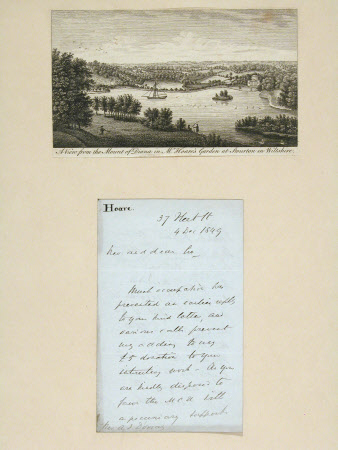 A View from the Mount of Diana in Mr. Hoare's Garden at Stourton in Wiltshire.
Hoare.
37 Fleet St
4 Dec 1849
Rev and dear Sir
Much occupation has
prevented an earlier reply
to your kind letter, and
various calls prevent
my adding to my
£5 donation to your
interesting work - As you
are kindly disposed to
favor the with
a pecuniary support